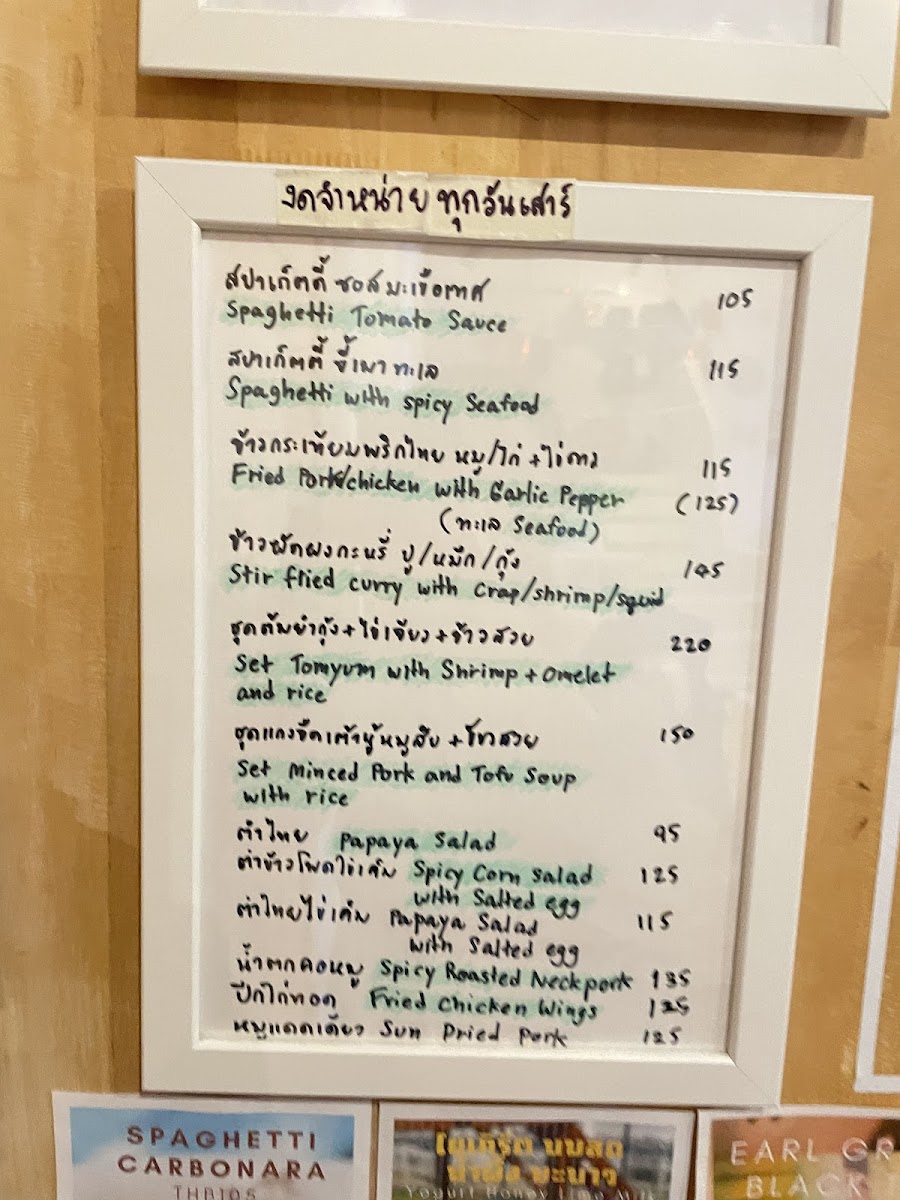 งดจำหน่าย ทุกวันเสาร์
สปาเก็ตตี้ ซอสมะเขือเทศ 105
Spaghetti Tomato Sauce
สปาเก็ตตี้ ขี้เมา ทะเล 115
Spaghetti with spicy Seafood
ข้าวกระเทียมพริกไทย หมู/ไก่ +ไข่ดาว 115
Fried Pork/chicken with Garlic Pepper (125)
(ทะเล Seafood)
ข้าวผัดผงกะหรี่ ปู/หมึก/กุ้ง 145
Stir fried curry with Crap/shrimp/squid
ชุดต้มยำกุ้ง+ไข่เจียว+ข้าวสวย 220
Set Tomyum with Shrimp + Omelet
and rice
ชุดแกงจืดเต้าหู้หมูสับ +ข้าวสวย 150
Set Minced Pork and Tofu Soup
with rice
ตำไทย Papaya Salad 95
ตำข้าวโพดไข่เค็ม Spicy Corn Salad 125
with Salted egg
ตำไทยไข่เค็ม Papaya Salad 115
with Salted egg
น้ำตกคอหมู Spicy Roasted Neck pork 135
ปีกไก่ทอด Fried Chicken Wings 125
หมูแดดเดียว Sun Dried Pork 125
SPAGHETTI
CARBONARA
THB195
โยเกิร์ต นมสด
น้ำผึ้ง มะนาว
Yogurt Honey Lime Milk
EARL GR
BLACK